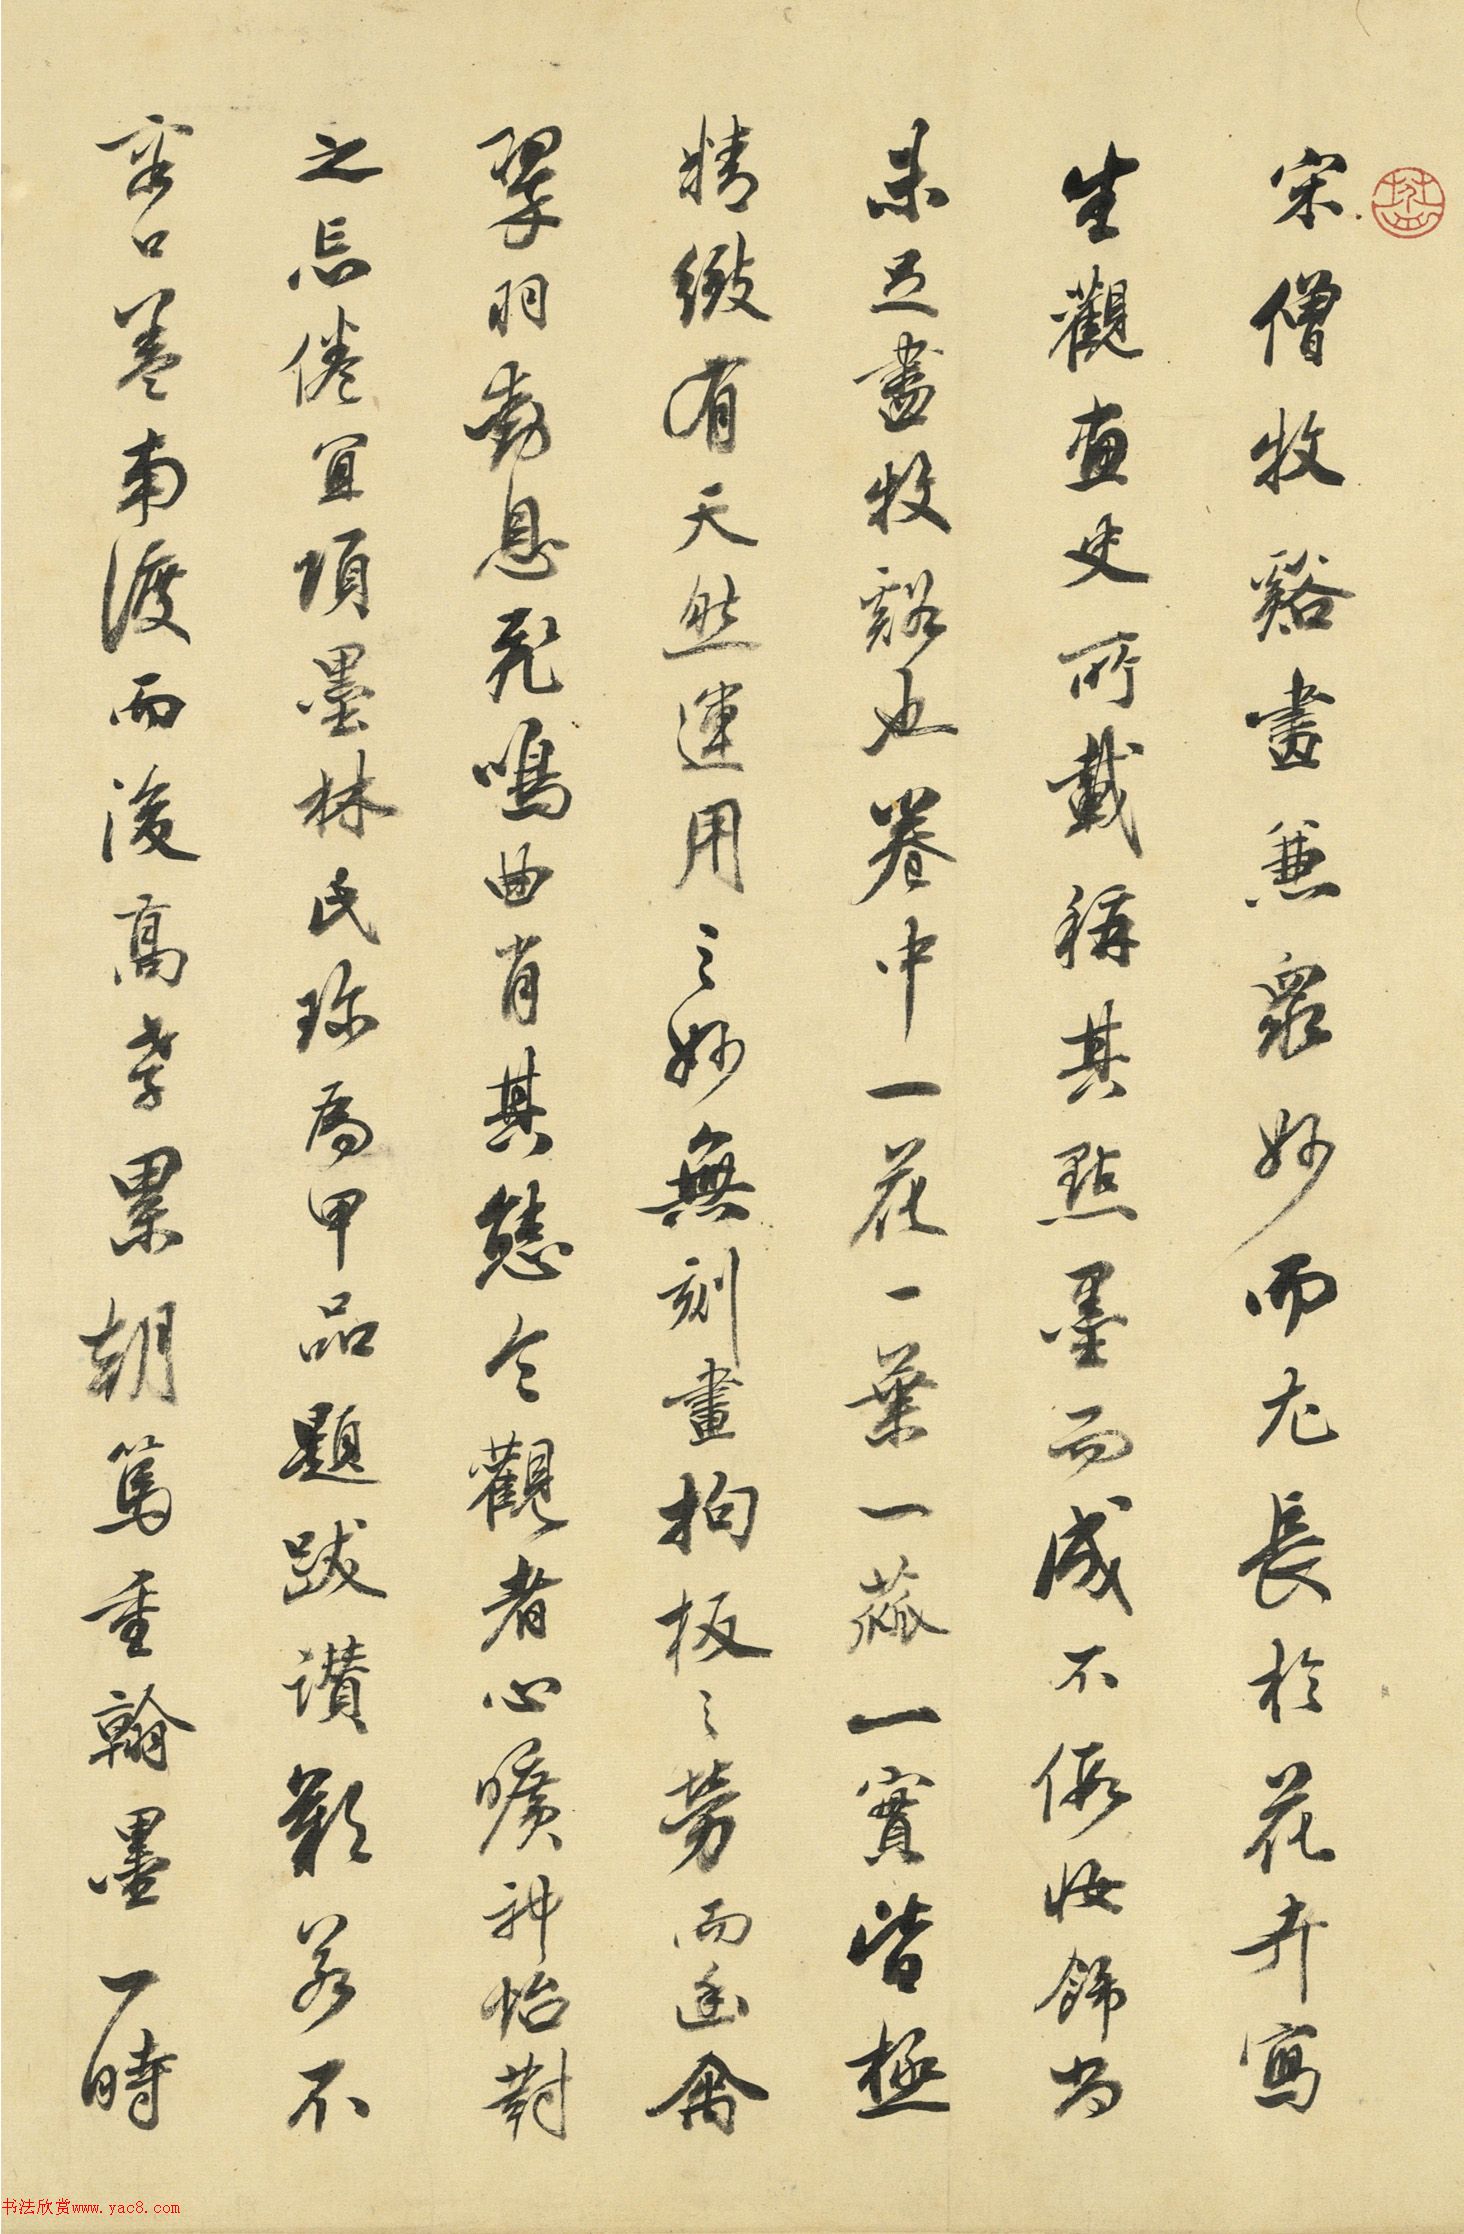 宋僧牧谿畫兼衆妙而尤長於花卉寫
生觀畫史所載稱其點墨而成不假妝飾尚
未足盡牧谿也卷中一花一葉一蓏一實皆極
精緻有天然運用之妙無刻畫拘板之勞而幽禽
翠羽動息飛鳴曲肖其態令觀者心曠神怡對
之忘倦宜項墨林氏珍為甲品題跋讚歎若不
容口蓋南渡而後高孝累朝篤重翰墨一時
书法欣赏www.yac8.com